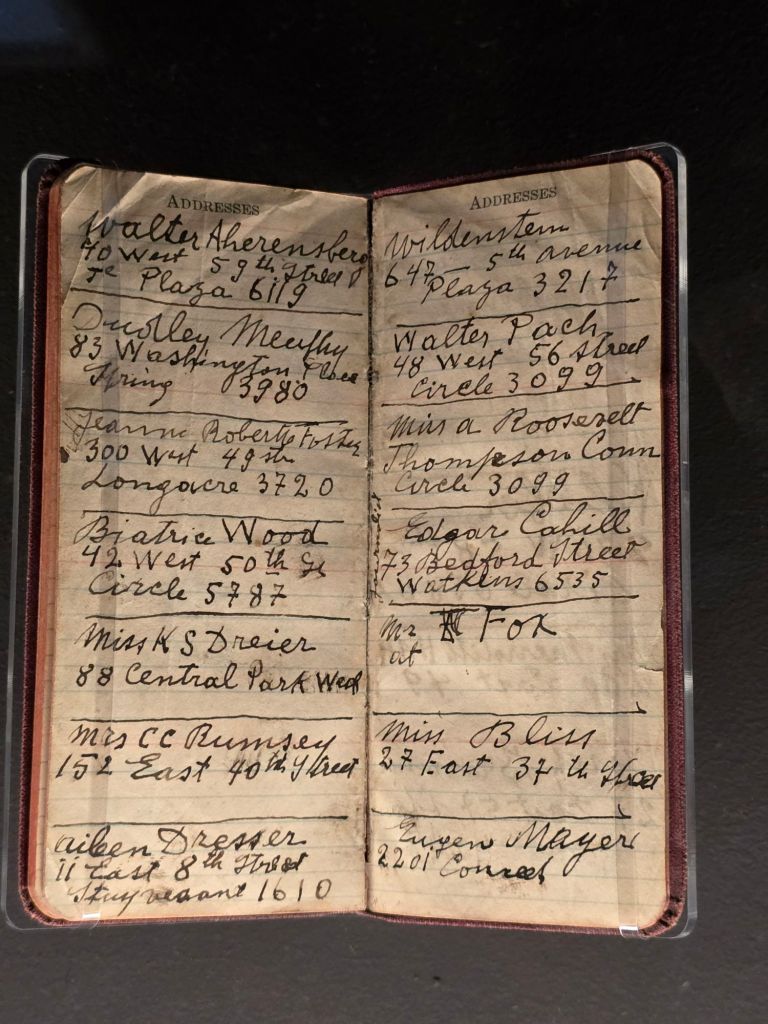 ADDRESSES
Walter Aherensberg
40 West 59th Street
Plaza 6119
Dudley Meuphy
83 Washington Place
Spring 3980
Jeanne Roberts Foster
300 West 49 str
Longacre 3720
Biatrice Wood
42 West 50th St
Circle 5787
Miss K S Dreier
88 Central Park West
Mrs CC Rumsey
152 East 40th Street
aiben Dresser
11 East 8th Street
Stuyvesant 1610
ADDRESSES
Wildenstein
647 5th avenue
Plaza 3217
Walter Pach
48 West 56 Street
Circle 3099
Miss a Roosevelt
Thompson Conn
Circle 3099
Edgar Cahill
73 Bedford Street
Watkins 6535
journalist
Mr Fox
at
Miss Bliss
27 East 37th Street
Eugen Mayer
2201